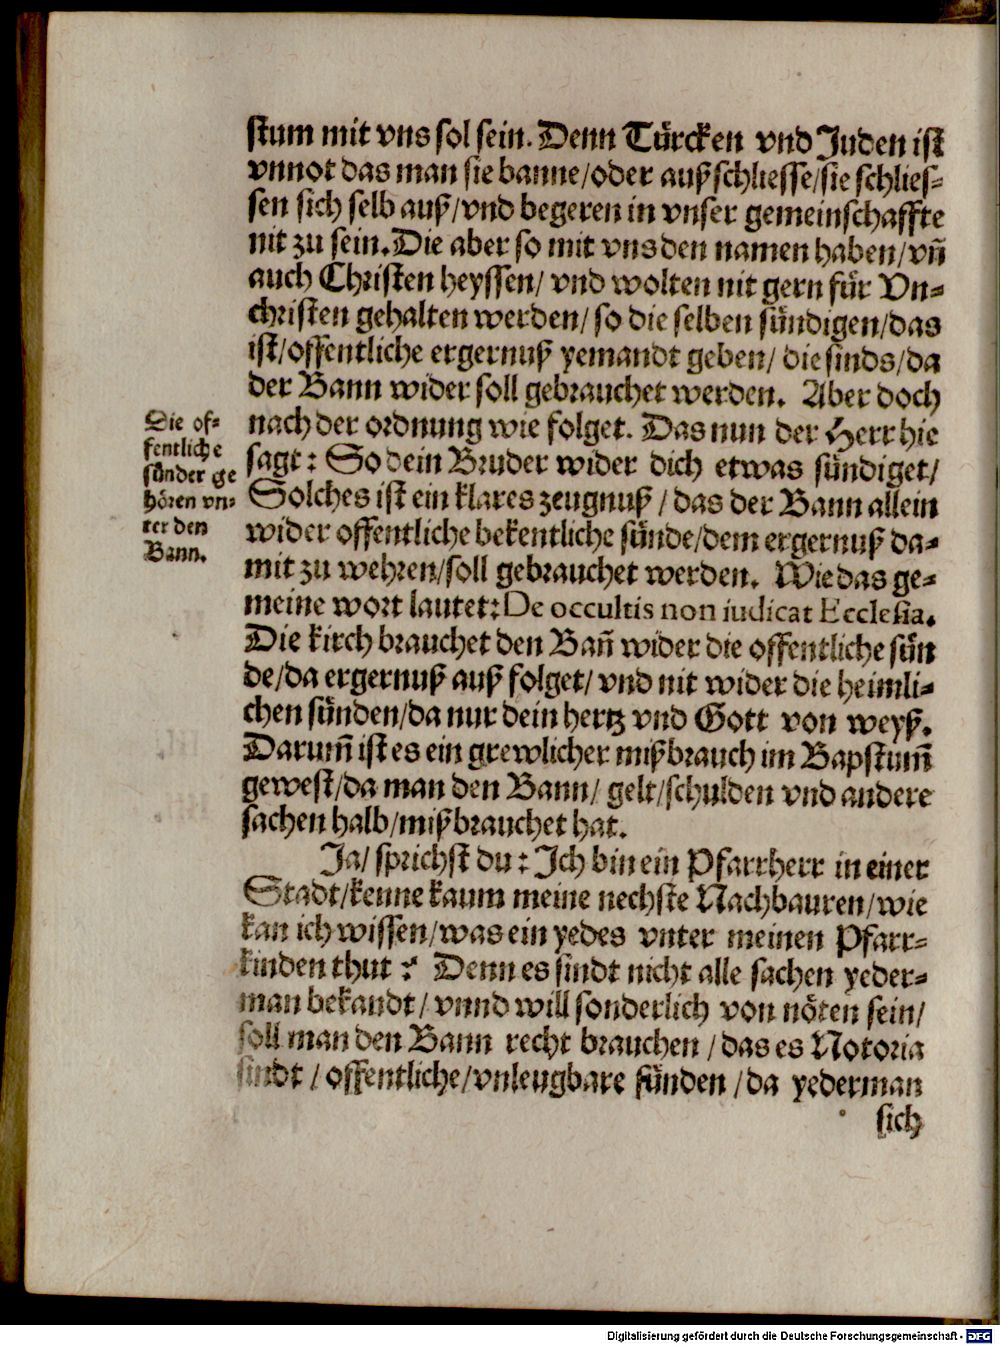 stum mit vns sol sein. Denn Türcken vnd Juden ist
vnnot das man sie banne/oder außschliesse/sie schlies-
sen sich selb auß/vnd begeren in vnser gemeinschaffte
nit zu sein. Die aber so mit vns den namen haben/vñ
auch Christen heyssen/ vnd wolten nit gern für Vn-
christen gehalten werden/ so die selben sündigen/das
ist/offentliche ergernuß yemandt geben/ die sinds/da
der Bann wider soll gebrauchet werden. Aber doch
nach der ordnung wie folget. Das nun der Herr hie
sagt: So dein Bruder wider dich etwas sündiget/
Solches ist ein klares zeugnuß/das der Bann allein
wider offentliche bekentliche sünde/dem ergernuß da-
mit zu wehren/soll gebrauchet werden. Wie das ge-
meine wort lautet: De occultis non iudicat Ecclesia.
Die kirch brauchet den Bañ wider die offentliche sün
de/da ergernuß auß folget/ vnd nit wider die heimli-
chen sünden/da nur dein hertz vnd Gott von weyß.
Darum̃ ist es ein grewlicher mißbrauch im Bapstum̃
gewest/da man den Bann/ gelt/schulden vnd andere
sachen halb/mißbrauchet hat.
Ja/ sprichst du: Ich bin ein Pfarrherr in einer
Stadt/kenne kaum meine nechste Nachbauren/wie
kan ich wissen/was ein yedes vnter meinen Pfarr-
kinden thut? Denn es sindt nicht alle sachen yeder-
man bekandt/ vnnd will sonderlich von nöten sein/
soll man den Bann recht brauchen/das es Notoria
sindt/offentliche/vnleugbare sünden/da yederman
sich
Die of-
fentliche
sünder ge
hören vn-
ter den
Bann.
Digitalisierung gefördert durch die Deutsche Forschungsgemeinschaft - DFG